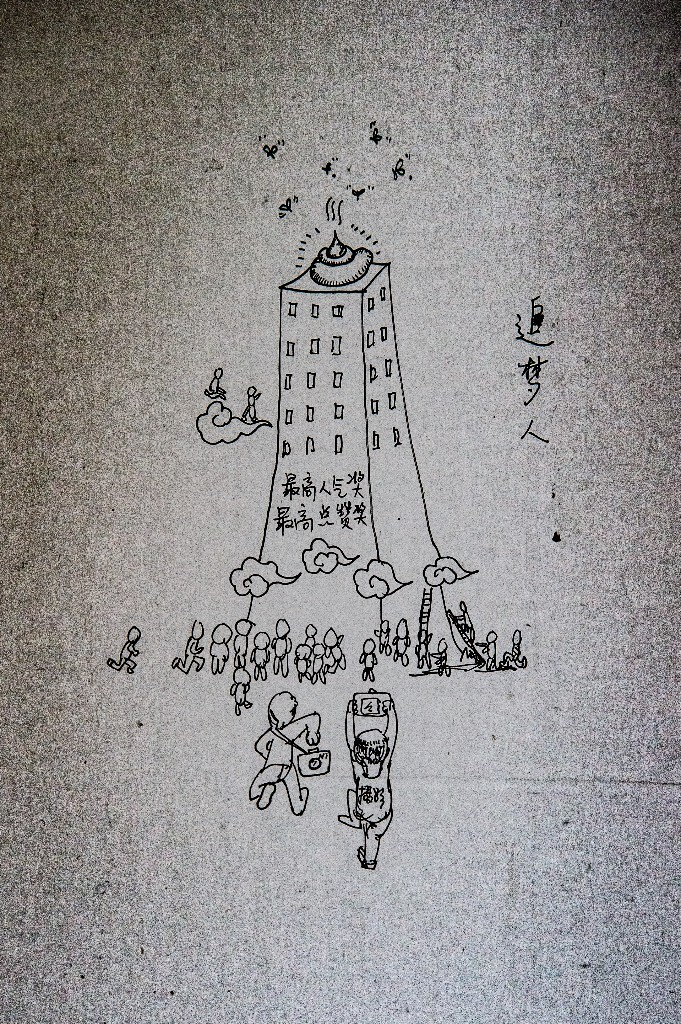 追梦人
最高人气奖
最高点赞奖
摄影